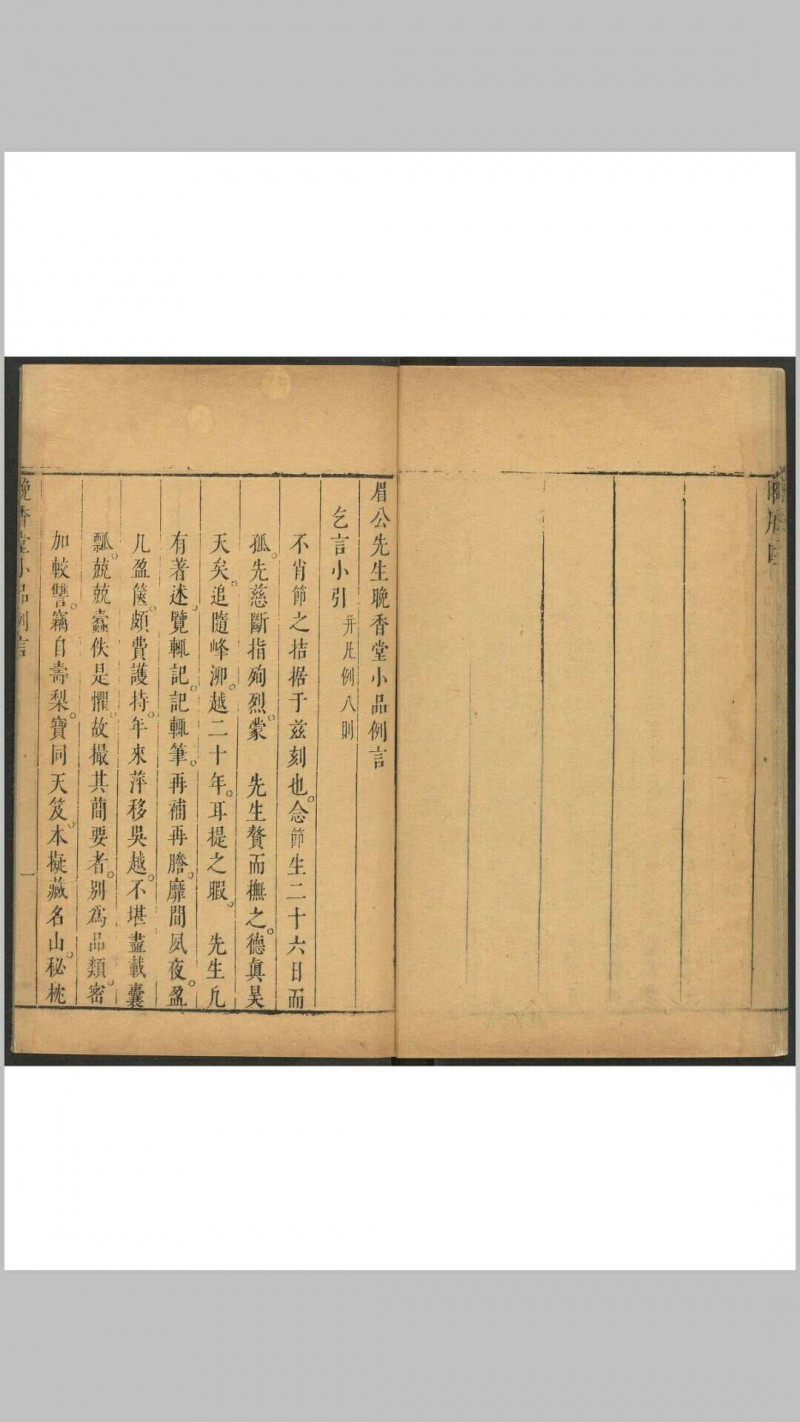 眉公先生晚香堂小品例言
乞言小引 并凡例八則
不肖節之拮据于兹刻也。念節生二十六日而
孤。先慈斷指殉烈。蒙 先生贅而撫之。德眞昊
天矣。追隨峰泖。越二十年。耳提之暇。 先生凡
有著述。覽輒記。記輒筆。再補再謄。靡間夙夜。盈
几盈篋。頗費護持。年來萍移吳越。不堪盡載囊
瓢。兢兢蠹佚是懼。故撮其簡要者。别爲品類。密
加較讐。竊自壽梨。寶同天笈。本擬藏名山。秘枕
晚香堂小品例言 一